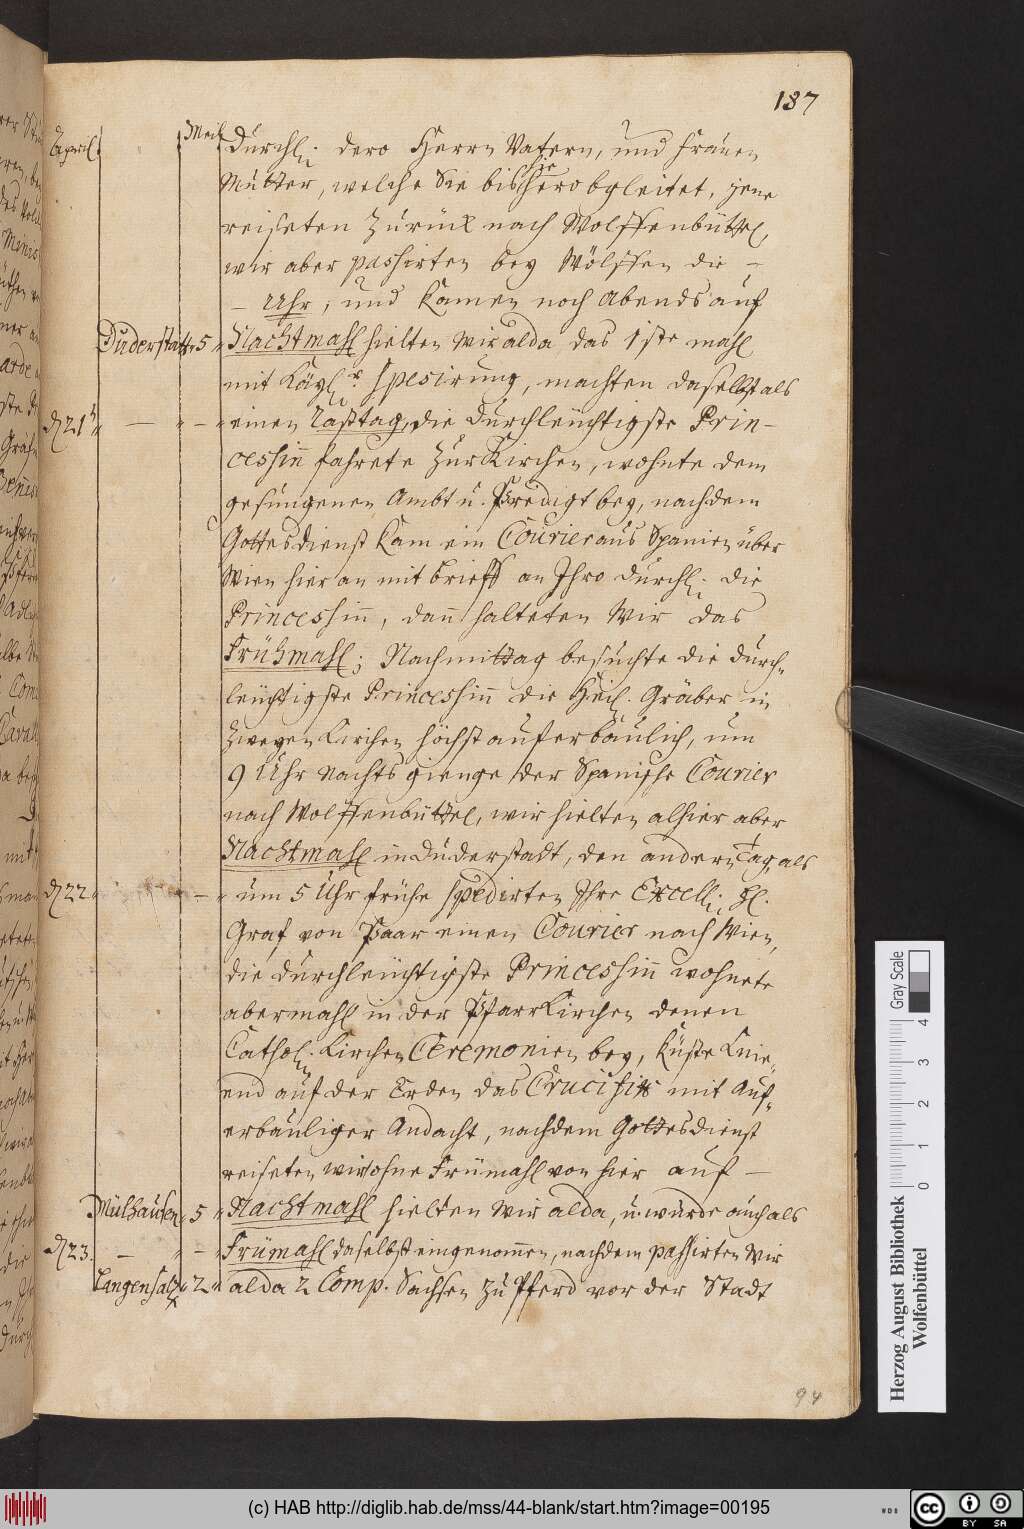 187
April. Meil. Durchl. dero Herrn Vatern, und Frauen
Mutter, welche Sie bis hiehero bgleitet, jene
reiseten zurück nach Wolffenbüttel,
wir aber passirten bey Wölffen die –
– Uhr, und kamen noch Abends auf
Duderstatt 5 Nachtmahl hielten wir alda das 1ste mahl
mit Käyl.r Speisirung, machten daselbst als
d 21t – – einen Rasttag, die Durchleüchtigste Prin-
cessin fahrete zur Kirchen, wohnte dem
gesungenen Ambt u. Predigt bey, nachdem
Gottesdienst kam ein Courier aus Spanien über
Wien hier an mit Brieff an Ihro Durchl. die
Princessin, dan halteten Wir das
Frühmahl; Nachmittag besuchte die Durch-
leüchtigste Princessin die Heil. Gräber in
zweyen Kirchen höchst auferbaulich, um
9 Uhr Nachts gienge der Spanische Courier
nach Wolffenbüttel, wir hielten alhier aber
Nachtmahl in Duderstadt, den andern Tag als
d 22 – um 5 Uhr frühe spedirten Ihre Excell. H.
Graf von Paar einen Courier nach Wien,
die Durchleüchtigste Princessin wohnete
abermahl in der Pfarrkirchen denen
Cathol. Kirchen Ceremonien bey, küste knie-
end auf der Erden das Crucifix mit Auf-
erbauliger Andacht, nachdem Gottesdienst
reiseten wir ohne Frümahl von hier auf –
Mülhausen 5 Nachtmahl hielten wir alda, u. wurde auch als
d 23. – – Frümahl daselbst eingenommen, nachdem passirten wir
Langensaltz 2 alda 2 Comp. Sachsen zu Pferd vor der Stadt
94
Gray Scale
0 1 2 3 4
Herzog August Bibliothek
Wolfenbüttel
(c) HAB http://diglib.hab.de/mss/44-blank/start.htm?image=00195
WDB
cc BY SA